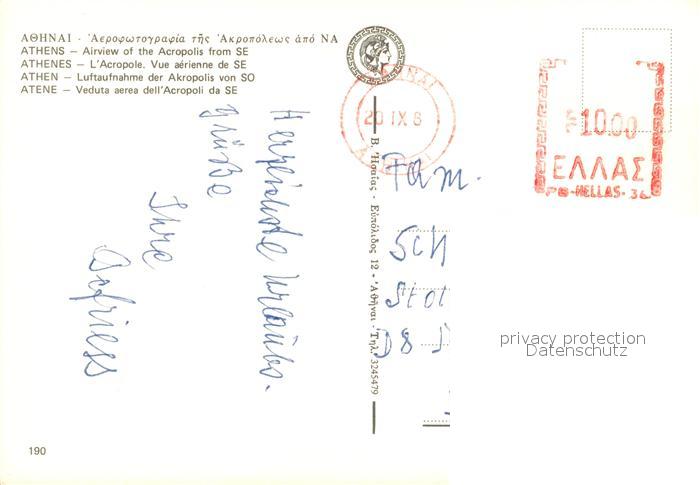 ΑΘΗΝΑΙ - Ἀεροφωτογραφία τῆς Ἀκροπόλεως ἀπό ΝΑ
ATHENS – Airview of the Acropolis from SE
ATHENES – L'Acropole. Vue aérienne de SE
ATHEN – Luftaufnahme der Akropolis von SO
ATENE – Veduta aerea dell'Acropoli da SE
Herzlichste Urlaubs-
grüße
Ihre
Β. Ἡσαΐας - Εὐπόλιδος 12 - Ἀθῆναι - Τηλ. 3245479
20 IX 8
10.00
ΕΛΛΑΣ
HELLAS - 34
Fam.
Sch
D8
privacy protection
Datenschutz
190